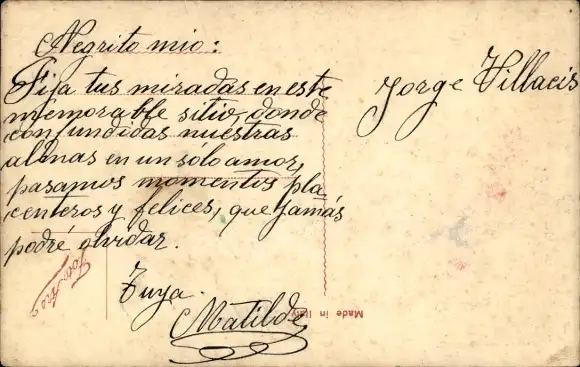 Negrito mio:
Fija tus miradas en este
memorable sitio, donde
confundidas nuestras
almas en un sólo amor,
pasamos momentos pla
centeros y felices, que jamás
podré olvidar.
Tuya
Matilde
Jorge Villacis
Made in Italy